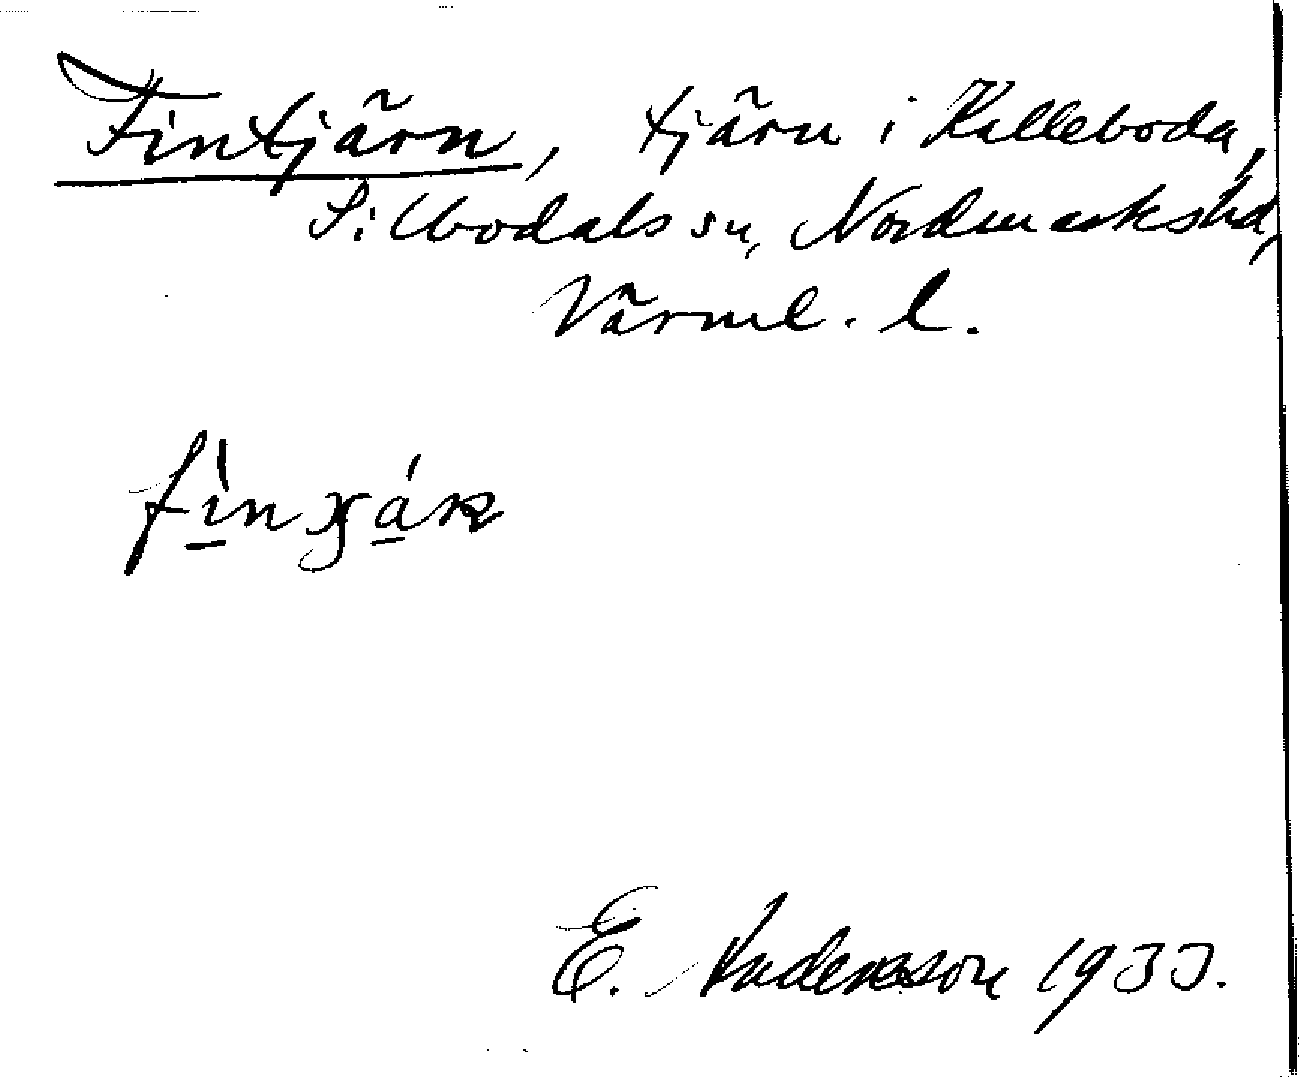 Fintjärn, tjärn i Kalleboda,
Silbodals sn, Nordmarkshd,
Värml. l.
E. Andersson 1933.